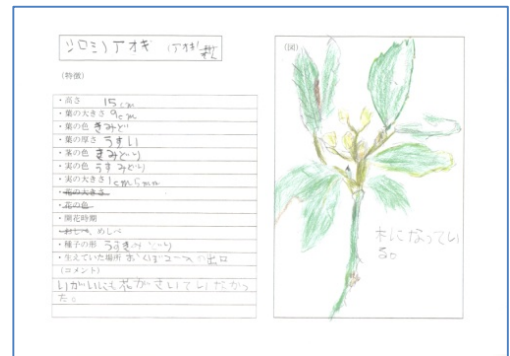 シロミノアオキ
(特徴)
・高さ 15cm
・葉の大きさ 9cm
・葉の色 きみどり
・葉の厚さ うすい
・茎の色 きみどり
・実の色 うすみどり
・実の大きさ 1cm5mm
・花の大きさ
・花の色
・開花時期
・おしべ、めしべ
・種子の形
・生えていた場所 の出口
(コメント)
いがいにも花がさいていなかっ
た。
(図)
木になってい
る。